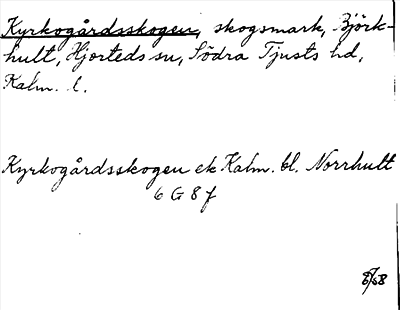 Kyrkogårdsskogen, skogsmark, Björk-
hult, Hjorteds sn, Södra Tjusts hd,
Kalm. l.
Kyrkogårdsskogen ek Kalm. bl. Norrhult
6 G 8 f